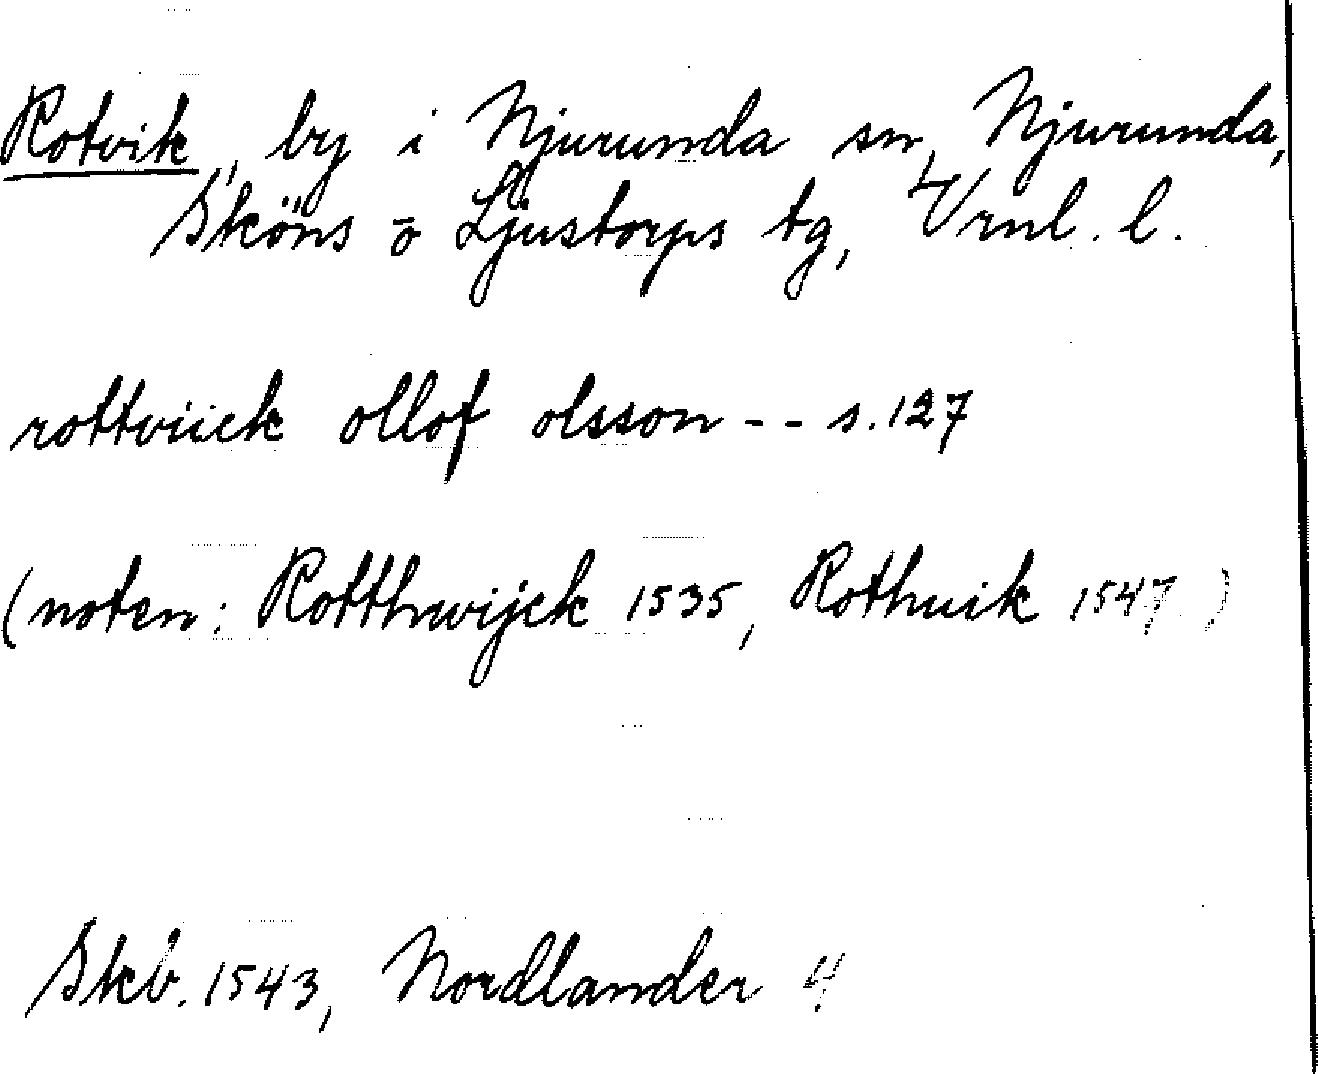 Rotvik, by i Njurunda sn, Njurunda,
Sköns o Ljustorps tg, Vrnl. l.
rottviick ollof olsson - - s. 127
(noten: Rotthwijck 1535, Rothuik 1547)
Skb. 1543, Nordlander 4